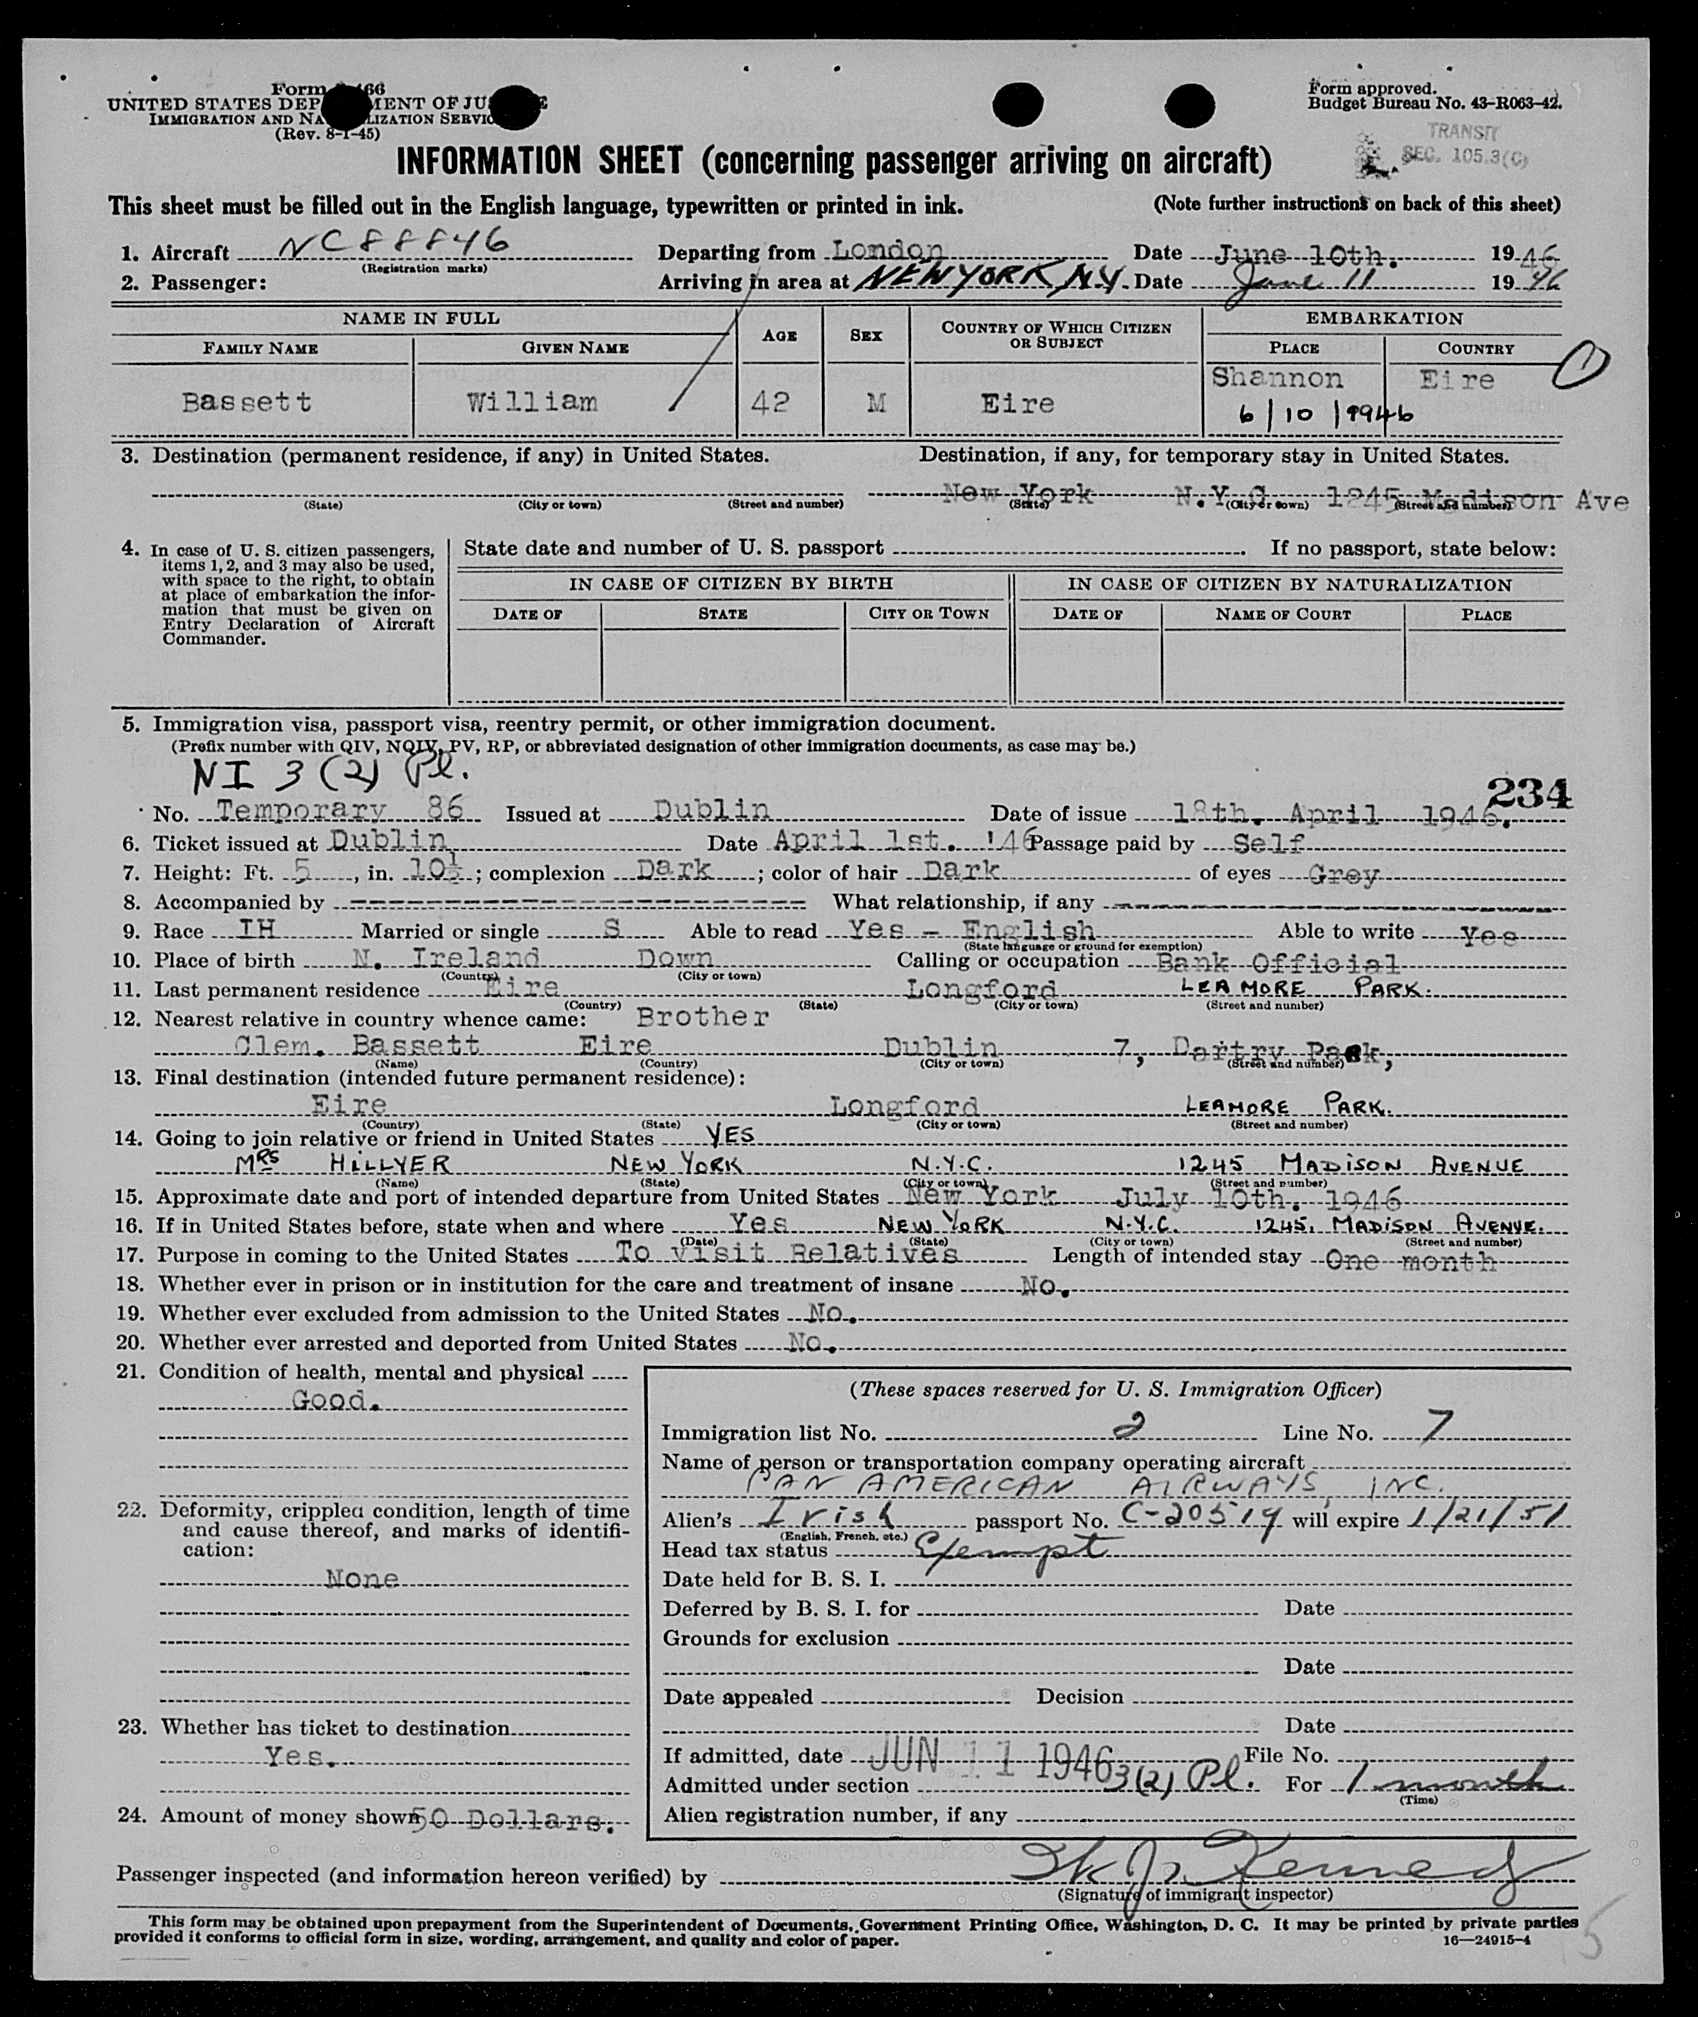 Form 466
UNITED STATES DEP MENT OF JU E
IMMIGRATION AND NA LIZATION SERVIC
(Rev. 8-1-45)
Form approved.
Budget Bureau No. 43-R063-42.
TRANSIT
SEC. 105.3(C)
INFORMATION SHEET (concerning passenger arriving on aircraft)
This sheet must be filled out in the English language, typewritten or printed in ink. (Note further instructions on back of this sheet)
1. Aircraft NC88846 Departing from London Date June 10th. 1946
(Registration marks)
2. Passenger: Arriving in area at NEW YORK, N.Y. Date June 11 1946
NAME IN FULL AGE SEX COUNTRY OF WHICH CITIZEN OR SUBJECT EMBARKATION
FAMILY NAME GIVEN NAME PLACE COUNTRY
Shannon Eire 1
Bassett William 42 M Eire 6/10/1946
3. Destination (permanent residence, if any) in United States. Destination, if any, for temporary stay in United States.
New York N.Y.C. 1245 Madison Ave
(State) (City or town) (Street and number) (State) (City or town) (Street and number)
4. In case of U. S. citizen passengers, items 1, 2, and 3 may also be used, with space to the right, to obtain at place of embarkation the information that must be given on Entry Declaration of Aircraft Commander.
State date and number of U. S. passport . If no passport, state below:
IN CASE OF CITIZEN BY BIRTH IN CASE OF CITIZEN BY NATURALIZATION
DATE OF STATE CITY OR TOWN DATE OF NAME OF COURT PLACE
5. Immigration visa, passport visa, reentry permit, or other immigration document.
(Prefix number with QIV, NQIV, PV, RP, or abbreviated designation of other immigration documents, as case may be.)
NI 3(2) Pl.
234
No. Temporary 86 Issued at Dublin Date of issue 18th. April 1946.
6. Ticket issued at Dublin Date April 1st. '46 Passage paid by Self
7. Height: Ft. 5, in. 10½; complexion Dark; color of hair Dark of eyes Grey
8. Accompanied by What relationship, if any
9. Race IH Married or single S Able to read Yes - English Able to write Yes
(State language or ground for exemption)
10. Place of birth N. Ireland Down Calling or occupation Bank Official
(Country) (City or town)
11. Last permanent residence Eire Longford LEAMORE PARK.
(Country) (State) (City or town) (Street and number)
12. Nearest relative in country whence came: Brother
Clem. Bassett Eire Dublin 7, Dartry Park,
(Name) (Country) (City or town) (Street and number)
13. Final destination (intended future permanent residence):
Eire Longford LEAMORE PARK.
(Country) (State) (City or town) (Street and number)
14. Going to join relative or friend in United States YES
MRS HILLYER NEW YORK N.Y.C. 1245 MADISON AVENUE
(Name) (State) (City or town) (Street and number)
15. Approximate date and port of intended departure from United States New York July 10th. 1946
16. If in United States before, state when and where Yes NEW YORK N.Y.C. 1245, MADISON AVENUE.
(Date) (State) (City or town) (Street and number)
17. Purpose in coming to the United States To visit Relatives Length of intended stay One month
18. Whether ever in prison or in institution for the care and treatment of insane No.
19. Whether ever excluded from admission to the United States No.
20. Whether ever arrested and deported from United States No.
21. Condition of health, mental and physical
Good.
22. Deformity, crippled condition, length of time and cause thereof, and marks of identification:
None
23. Whether has ticket to destination
Yes.
24. Amount of money shown 50 Dollars.
(These spaces reserved for U. S. Immigration Officer)
Immigration list No. 2 Line No. 7
Name of person or transportation company operating aircraft
PAN AMERICAN AIRWAYS, INC.
Alien's Irish passport No. C-20519 will expire 1/21/51
(English, French, etc.)
Head tax status Exempt
Date held for B. S. I.
Deferred by B. S. I. for Date
Grounds for exclusion
Date
Date appealed Decision
Date
If admitted, date JUN 11 1946 File No.
Admitted under section 3(2) Pl. For 1 month
(Time)
Alien registration number, if any
Passenger inspected (and information hereon verified) by Kennedy
(Signature of immigrant inspector)
This form may be obtained upon prepayment from the Superintendent of Documents, Government Printing Office, Washington, D. C. It may be printed by private parties
provided it conforms to official form in size, wording, arrangement, and quality and color of paper. 16—24915-4
5